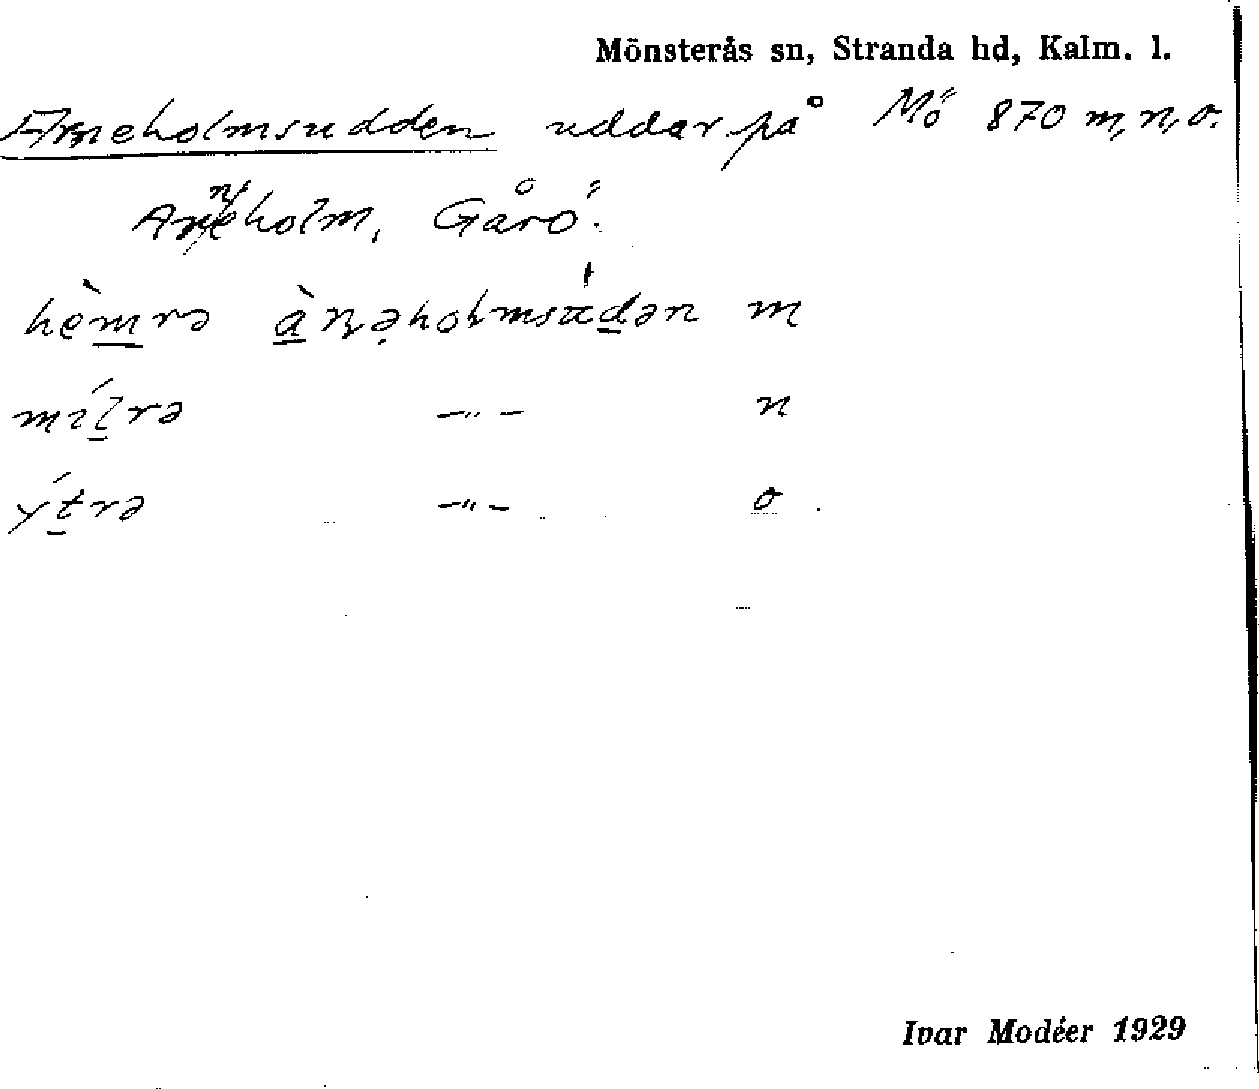 Mönsterås sn, Stranda hd, Kalm. l.
Arneholmsudden uddar på Mö 870 m, n, o.
Arneholm, Gårö.
hèmrə àɳəholmsùdən m
mílrə —"— n
ýtrə —"— o
Ivar Modéer 1929